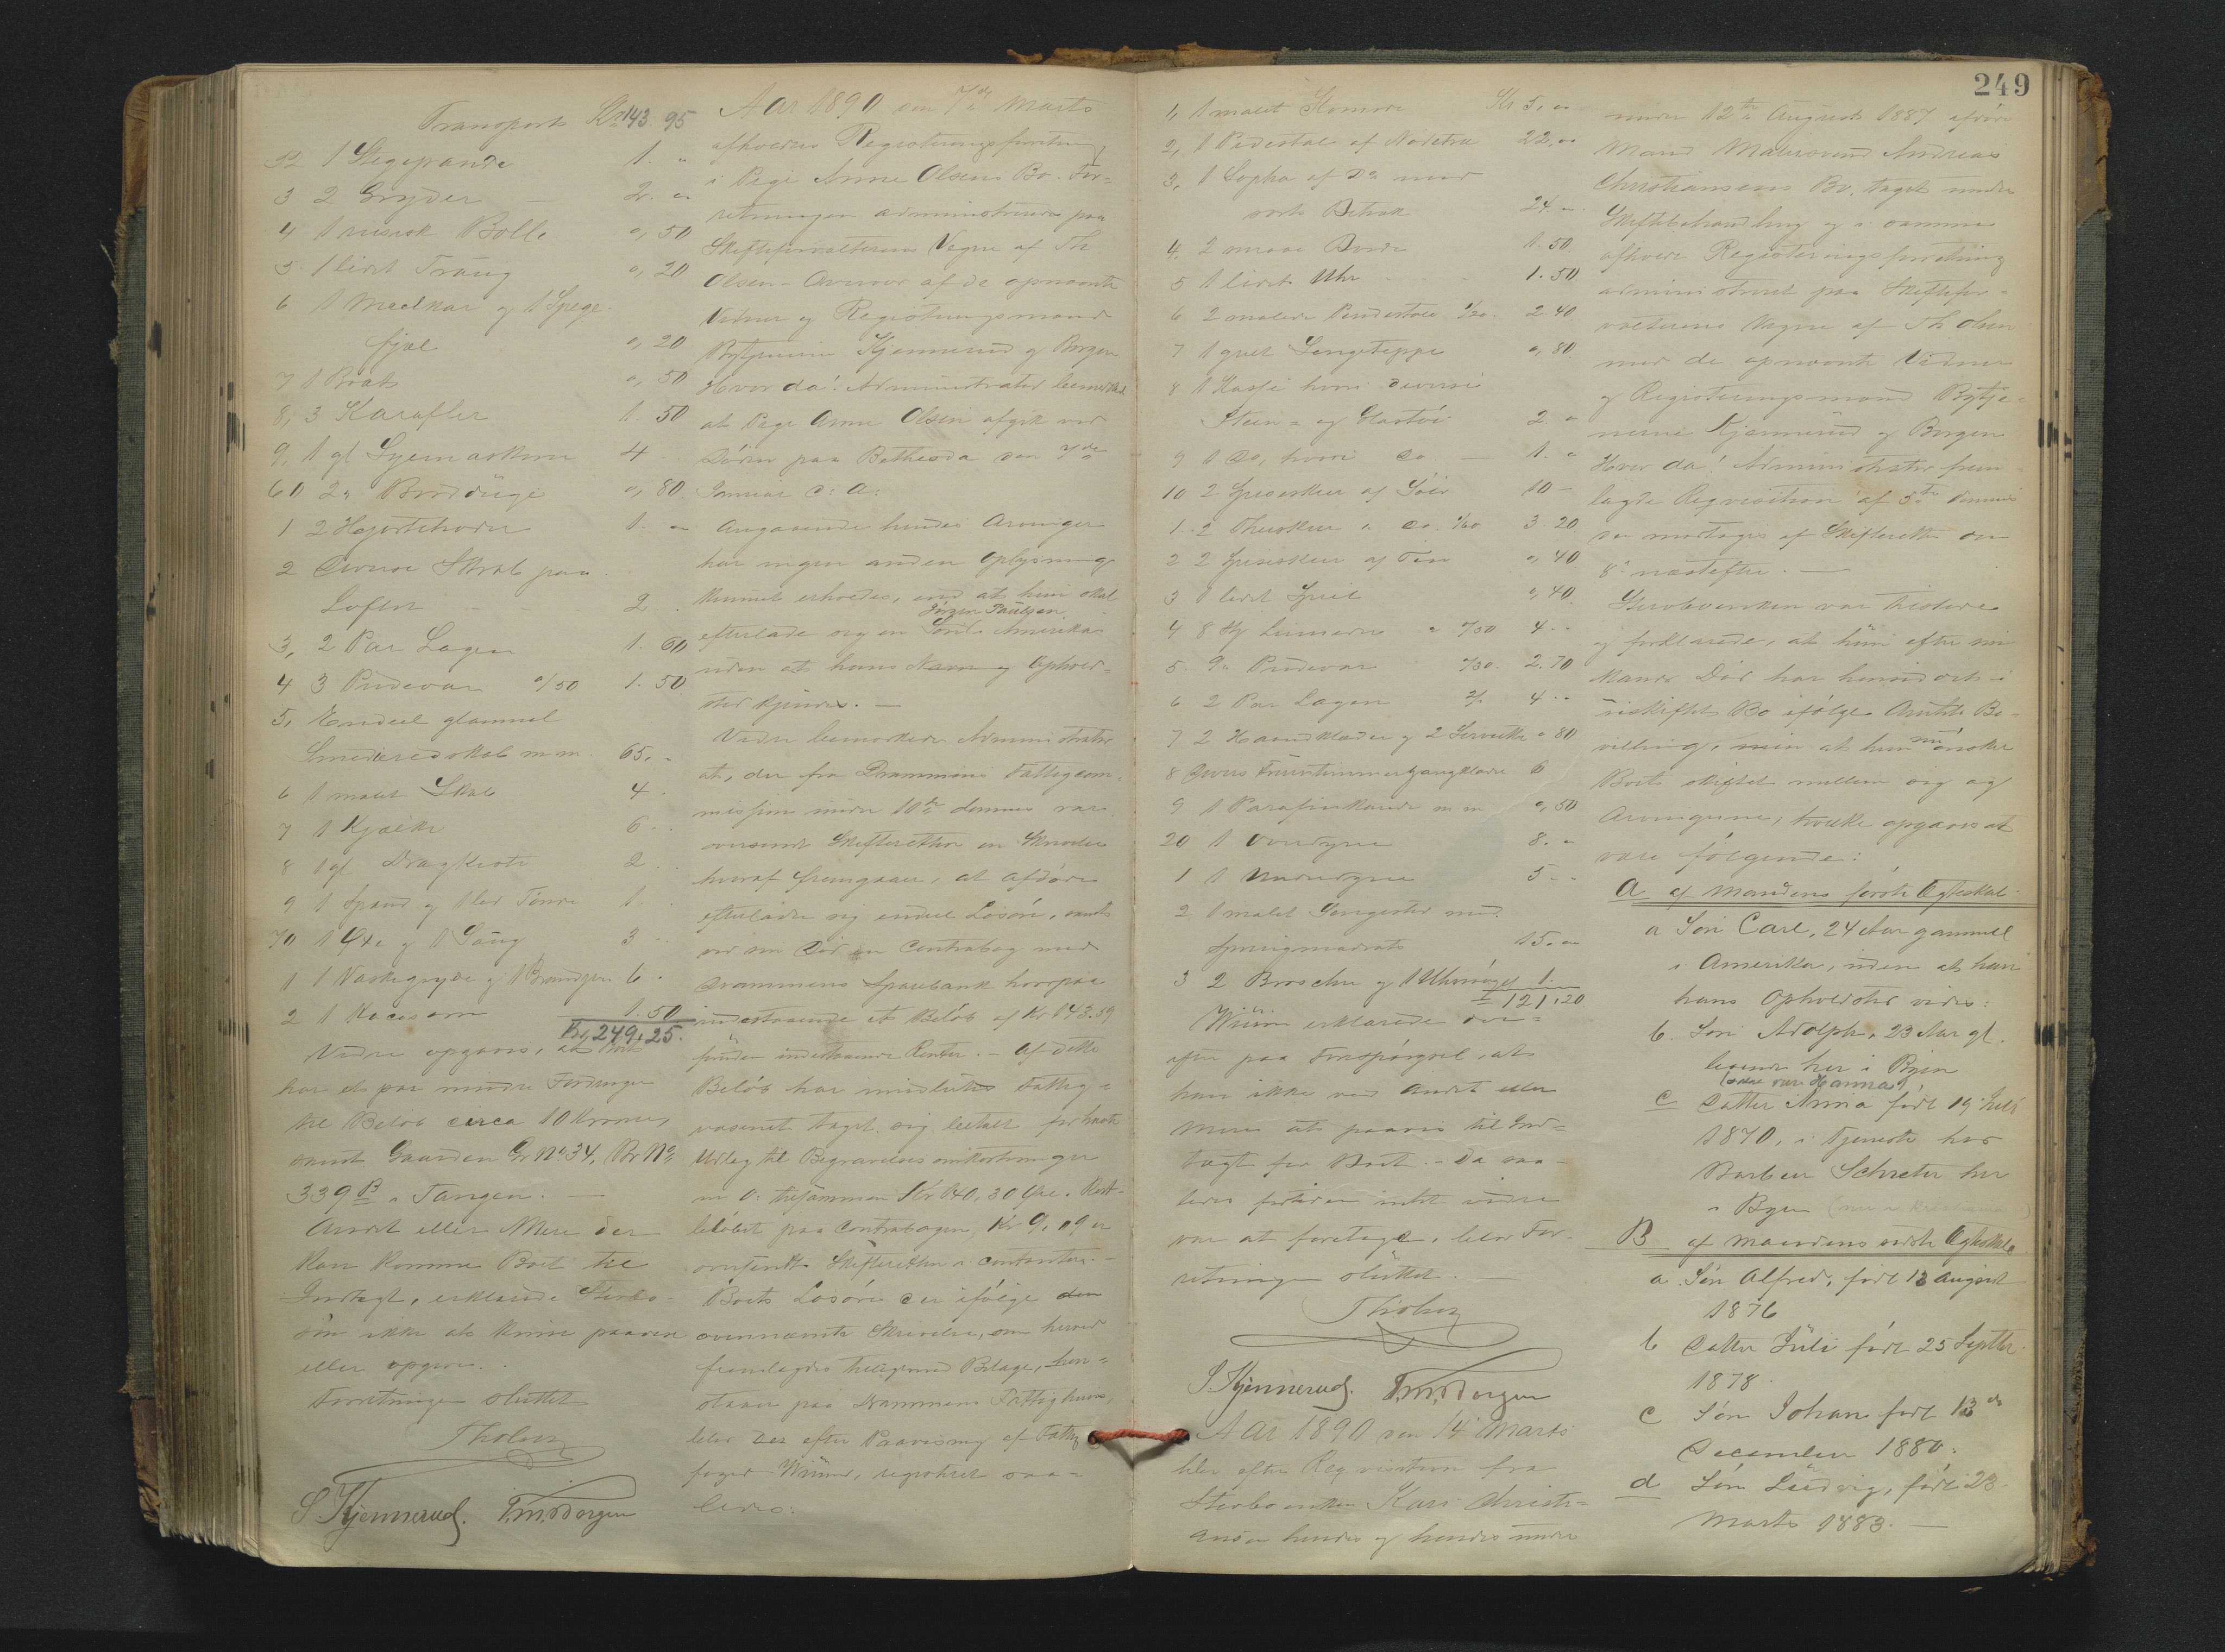 Transport Kr 143. 95
52 1 Stegepande 1. "
3 2 Gryder — 2. "
4 1 russisk Bolle 0, 50
5 1 lidet Traug 0, 20
6 1 Mælkar og 1 Spege-
fjæl 0, 20
7 1 Bræt 0, 50
8, 3 Karafler 1. 50
9, 1 gl Syemaskine 4
60 2 " Brødduge 0, 80
1 2 Hjortehoder 1. "
2 Diverse Skrab paa
Loftet — — 2
3, 2 Par Lagen 1. 60
4 3 Pudevar 0/50 1. 50
5, Endeel glammel
Smedieredskab m m. 65. "
6 1 malet Skab 4
7 1 Kjælke 6
8 1 gl. Dragkiste 2
9 1 Spand og 1 led Tønde 1
70 1 Øxe og 1 Saug 3
1 1 Vaskegryde og 1 Brandjern 6
2 1 Kacesam 1. 50
Kr, 249,25.
Videre opgaves, at Boet
har et par mindre Fordringer
til Beløb circa 10 Kroner,
samt Gaarden Gr No 34, Br No
339 B i Tangen. —
Andet eller Mere der
kan komme Boet til
Indtægt, erklærede Sterbo-
ikke at kunne paavise
eller opgive.
Forretningen sluttet
Tholsen
S. Kjennerud. T.M. Borgen
Aar 1890 den 7de Marts
afholdtes Registreringsforretning
i Pige Anne Olsens Bo. For-
retningen administreredes paa
Skifteforvalterens Vegne af Th
Olsen - Overvær af de opnævnte
Vidner og Registreringsmænd
Bytjenerne Kjennerud og Borgen
Hvor da! Administrator bemærkede
at Pige Anne Olsen afgik ved
Døden paa Bethesda den 7de
Januar d: A:
Angaaende hendes Arvinger
har ingen anden Oplysning
kunnet erholdes, end at hun skal
Jørgen Paulsen
efterlade sig en Søn i Amerika
uden at hans Navn og Ophold-
sted kjendes. —
Videre bemærkede Administrator
at, der fra Drammens Fattigkom-
mission under 10de dennes var
oversendt Skifteretten en Skrivelse
hvoraf fremgaaer, at afdøde
efterlader sig endeel Løsøre, samt
ved sin Død en Contrabog med
Drammens Sparebank hvorpaa
indestaaende et Beløb af Kr 143.59
foruden indestaaende Renter. — Af dette
Beløb har imidlertid Fattig-
væsenet taget sig betalt for havte
Udlæg til Begravelsesomkostninger
m. v. tilsammen Kr 140, 30 Øre. Rest-
beløbet paa Contrabogen, Kr 9,09 er
oversendt Skifteretten i contanter. —
Boets Løsøre der ifølge den
ovennævnte Skrivelse, som herved
fremlagdes tilligemed Bilage, hen-
staaer paa Drammens Fattighuus,
blev der efter Paavisning af Fattig
foged Wiimer, registreret saa-
ledes:
249
1, 1 malet Komode Kr 5. "
2, 1 Pidestal af Nødetræ 22, "
3, 1 Sopha af Do med
sort Betræk 24. "
4, 2 smaae Borde 1. 50.
5 1 lidet Uhr 1. 50
6 2 malede Pindestole 1/20. 2 40
7 1 gult Sengeteppe 0, 80.
8 1 Kasse hvori diverse
Steen- og Glastøi 2. "
9 1 do, hvori do — 1. "
10 2 Spiseskeer af Sølv 10 —
1 2 Theeskeer " do. 1/60 3. 20.
2 2 Spiseskeer af Tin 0, 40
3 1 lidet Speil 0, 40.
4 8 Hy Linneder a 0/50 4 - -
5 9 " Pudevar 0/30. 2. 70
6 2 Par Lagen 2/. 4 - -
7 2 Haandklæder og 2 Servietter 0 80
8 Divers Fruentimmergangklæder 6
9 1 Parafinkande m m 0, 50
20 1 Overdyne 8. "
1 1 Underdyne 5 - -
2 1 malet Sengested med
Springmadrats 15. "
3 2 Brosche og 1 Uhrnøgel 1.
121,20
Wiimer erklærede der-
efter paa Forespørgsel, at
han ikke ved Andet eller
Mere at paavise til Ind-
tægt for Boet. — Da saa-
ledes fortiden intet videre
var at foretage, blev For-
retningen sluttet. —
Tholsen
S. Kjennerud. T.M. Borgen
Aar 1890 den 14 Marts
blev efter Reqvisition fra
Sterboenken Kari Christi-
ansen hendes og hendes under
under 12te August 1887 afdøde
Mand Malersvend Andreas
Christiansens Bo, taget under
Skiftebehandling og i samme
afholdt Registreringsforretning
administreret paa Skiftefor-
valterens Vegne af Th Olsen
med de opnævnte Vidner
og Registreringsmænd Bytje-
nerne Kjennerud og Borgen
Hvor da! Administrator frem-
lagde Reqvisition af 5te dennes
der modtages af Skifteretten den
8de næstefter. —
Sterboenken var tilstede
og forklarede, at hun efter sin
Mands Død har hensiddet i
uskiftet Bo ifølge Amtets Be-
villing, men at hun nu ønsker
Boet skiftet mellem sig og
Arvingerne, hvilke opgaves at
være følgende:
A af Mandens første Ægteskab
a Søn Carl, 24 Aar gammel
i Amerika, uden at han
hans Opholdsted vides:
b. Søn Adolph, 23 Aar gl.
boende her i Byen
Hanna
c Datter Anna født 19 Juli
1870, i Tjeneste hos
Barber Schreter her
i Byen (nu i Kristiania)
B af Mandens sidste Ægteskab
a Søn Alfred, født 13 August
1876
b Datter Juli født 25 Septbr.
1878.
c Søn Johan født 13de
December 1880:
d Søn Ludvig, født 23.
Marts 1883. —